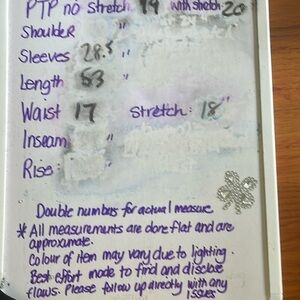 PTP no Stretch 19 with stretch 20
Shoulder "
Sleeves 28.5 "
Length 53 "
Waist 17 Stretch: 18"
Inseam "
Rise:
Double numbers for actual measure
* All measurements are done flat and are
approximate.
Colour of item may vary due to lighting.
Best effort made to find and disclose
flaws. Please follow up directly with any
issues